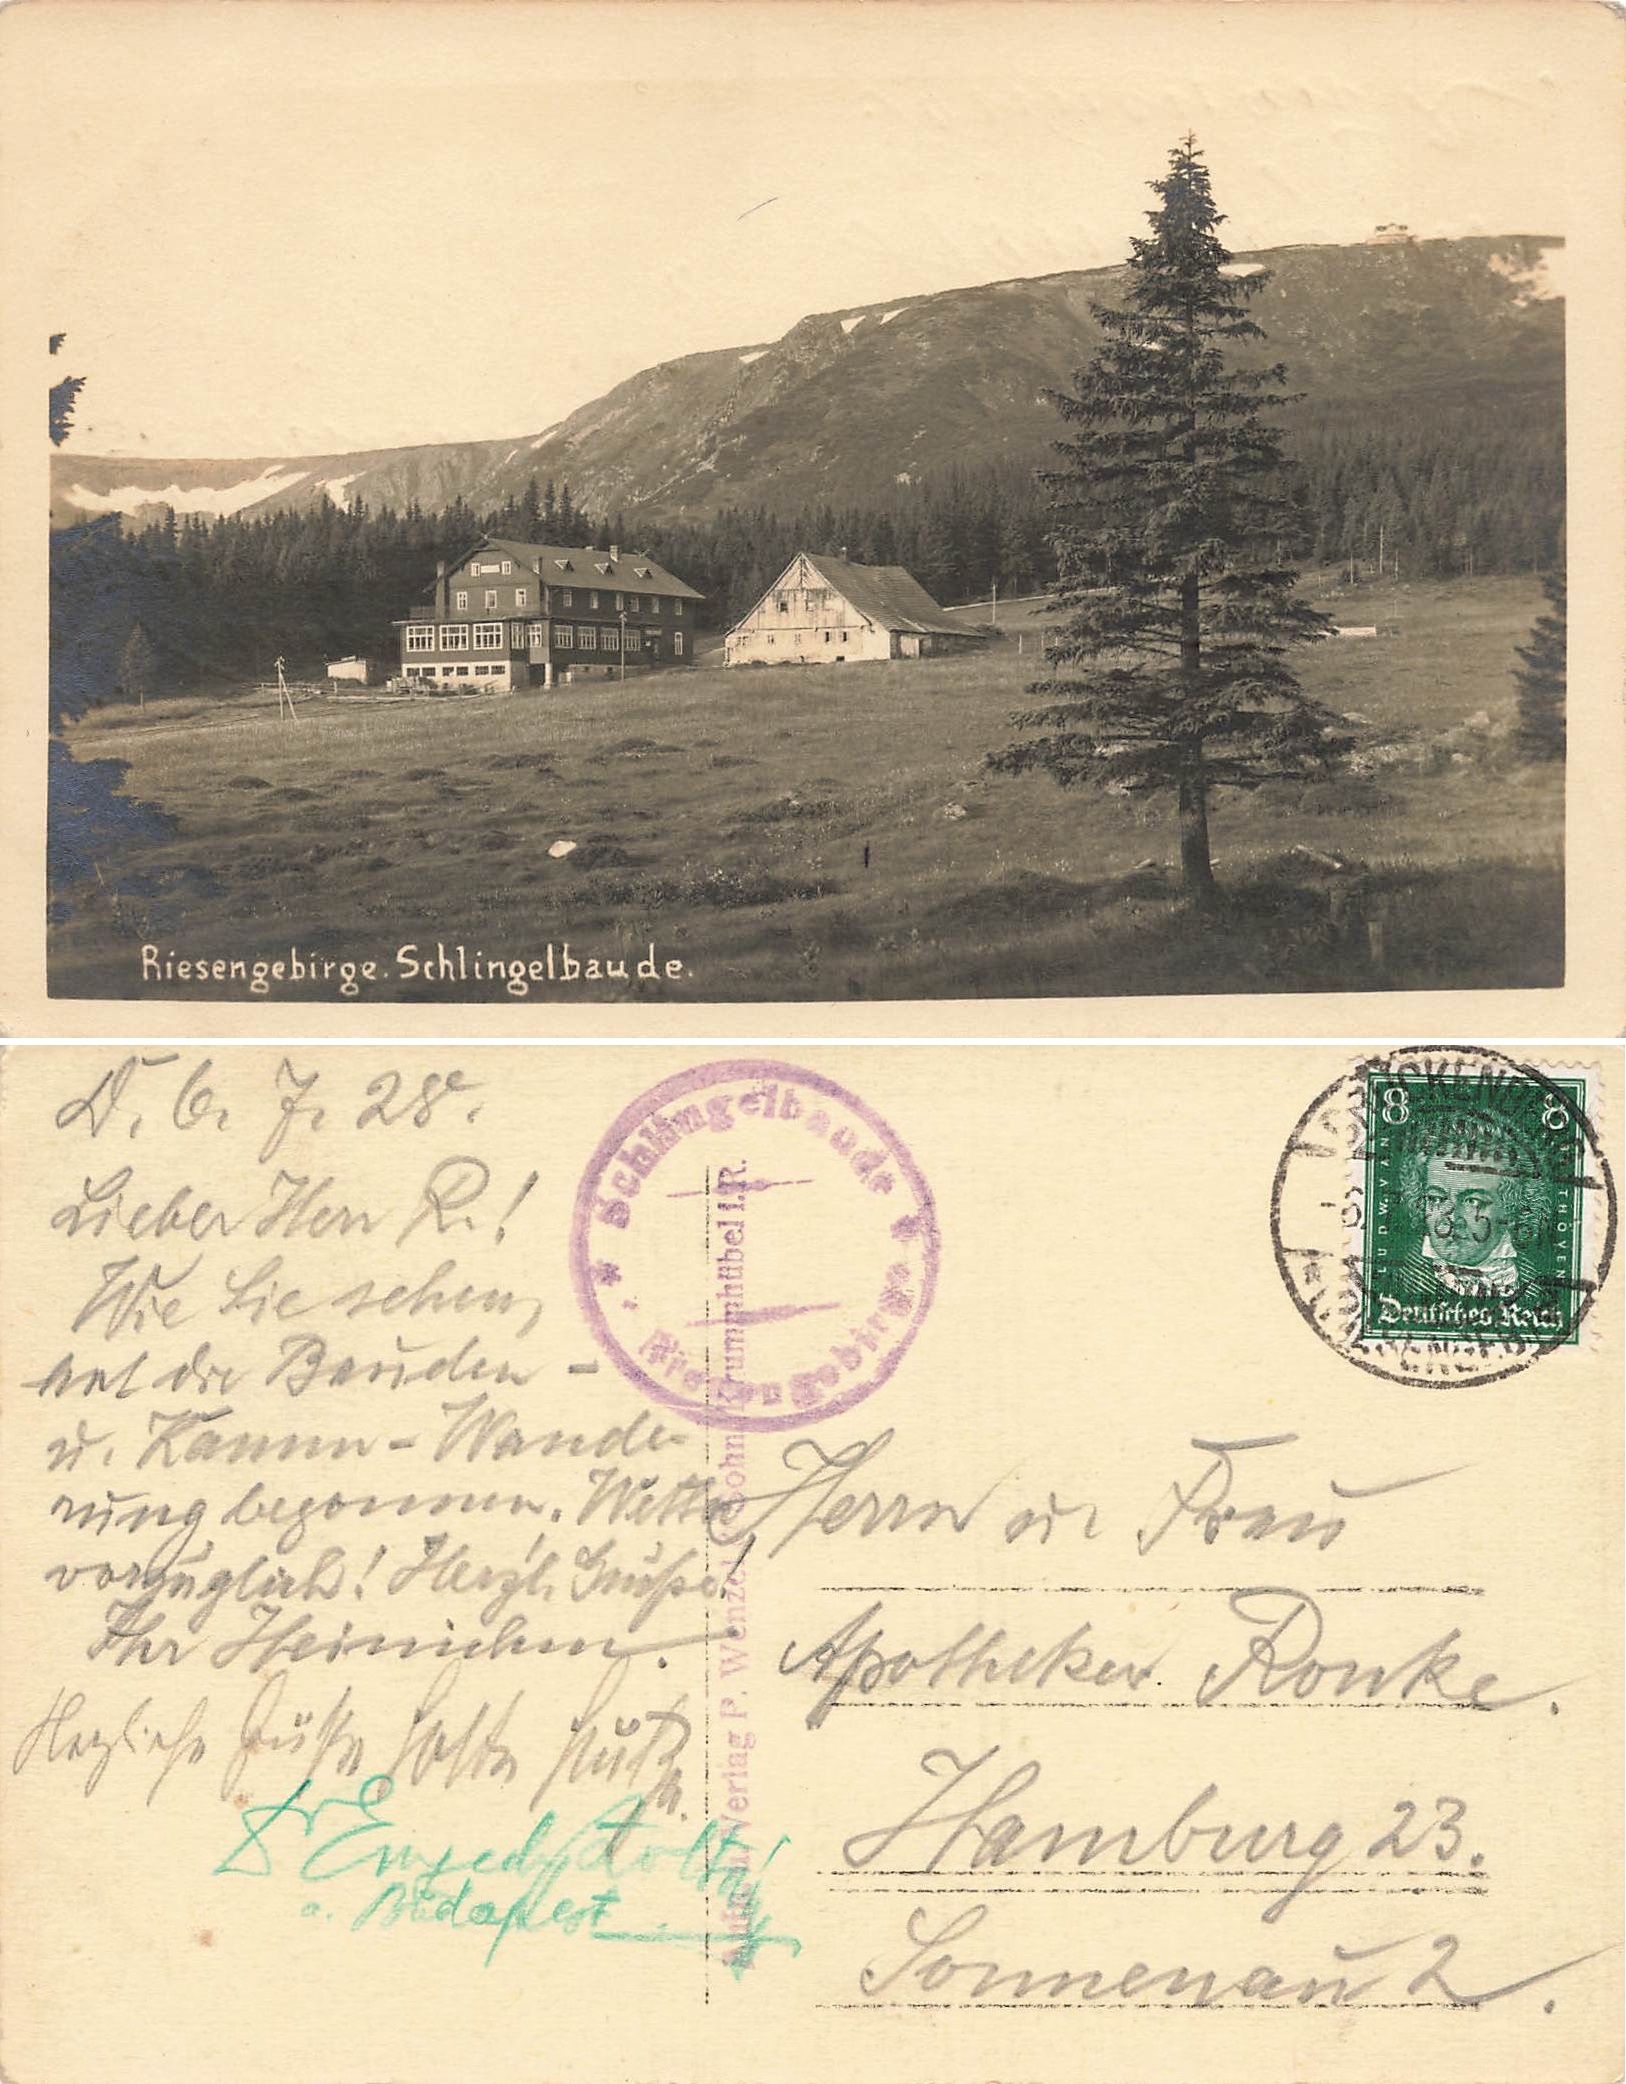 Riesengebirge. Schlingelbaude.
D. 6. 7. 28.
Lieber Herr R.!
Wie Sie sehen,
hat die Bauden-
u. Kamm-Wande-
rung begonnen. Wetter
vorzüglich! Herzl. Grüße!
Ihr Heinichen.
Herzliche Grüße
Dr
a. Budapest
* Schlingelbaude *
Riesengebirge
Verlag P. Wenzel Sohn Krummhübel i. R.
8 8
LUDWIG VAN BEETHOVEN
Deutsches Reich
Herrn u. Frau
Apotheker Ronke.
Hamburg 23.
Sonnenau 2.